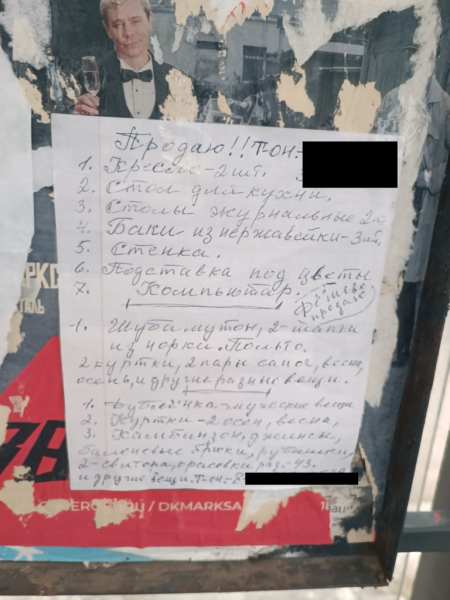 Продаю!! Тон.-
1. Кресло-2 шт.
2. Стол для кухни.
3. Столы журнальные 2
4. Баки из нержавейки-3шт.
5. Стенка.
6. Подставка под цветы
7. Компьютер.
Дёшево
продаю
1. Шуба мутон, 2-шапки
из норки. Пальто.
2 куртки, 2 пары сапог, весна,
осень, и другие разные вещи.
1. мужские вещи
2. Куртки-2 осен, весна,
3. Камбинзон, джинсы,
рубашки,
2-свитора, красовки раз-43.
и другие вещи. Тон-8-
78
/ DKMARKSA